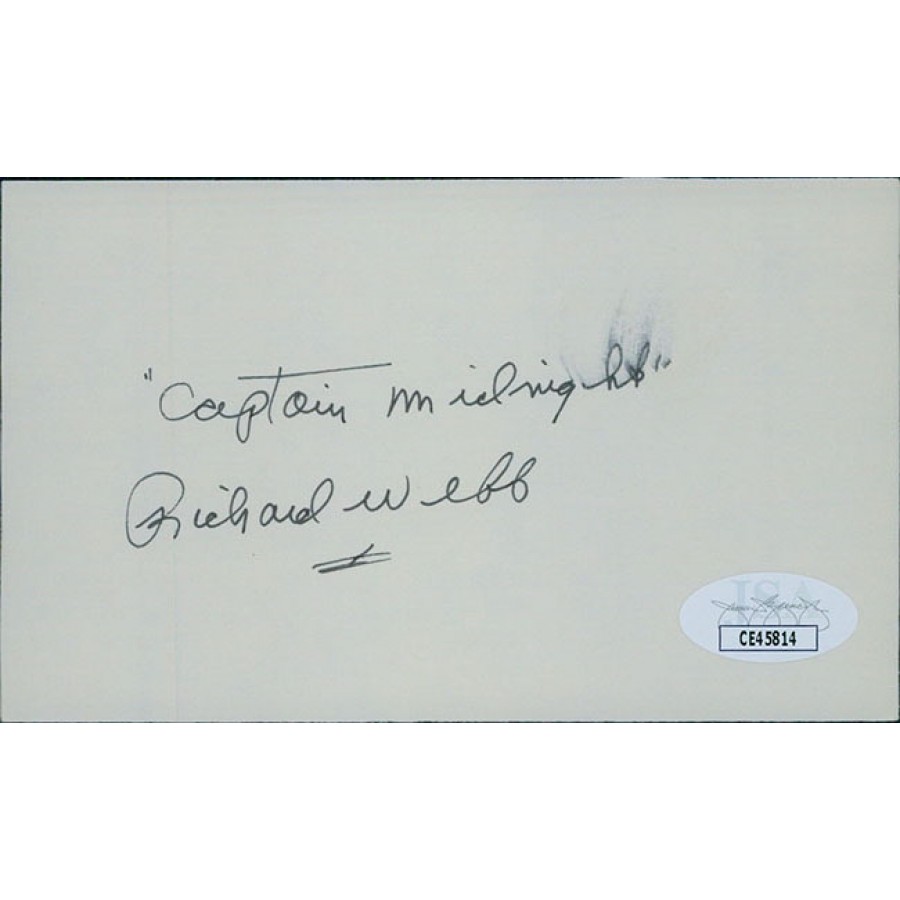 "Captain Midnight"
Richard Webb
JSA
CE45814